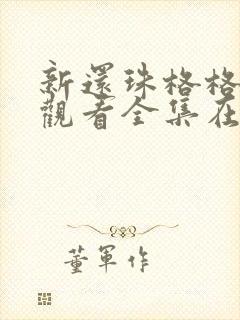 新還珠格格
觀看全集在
董軍作